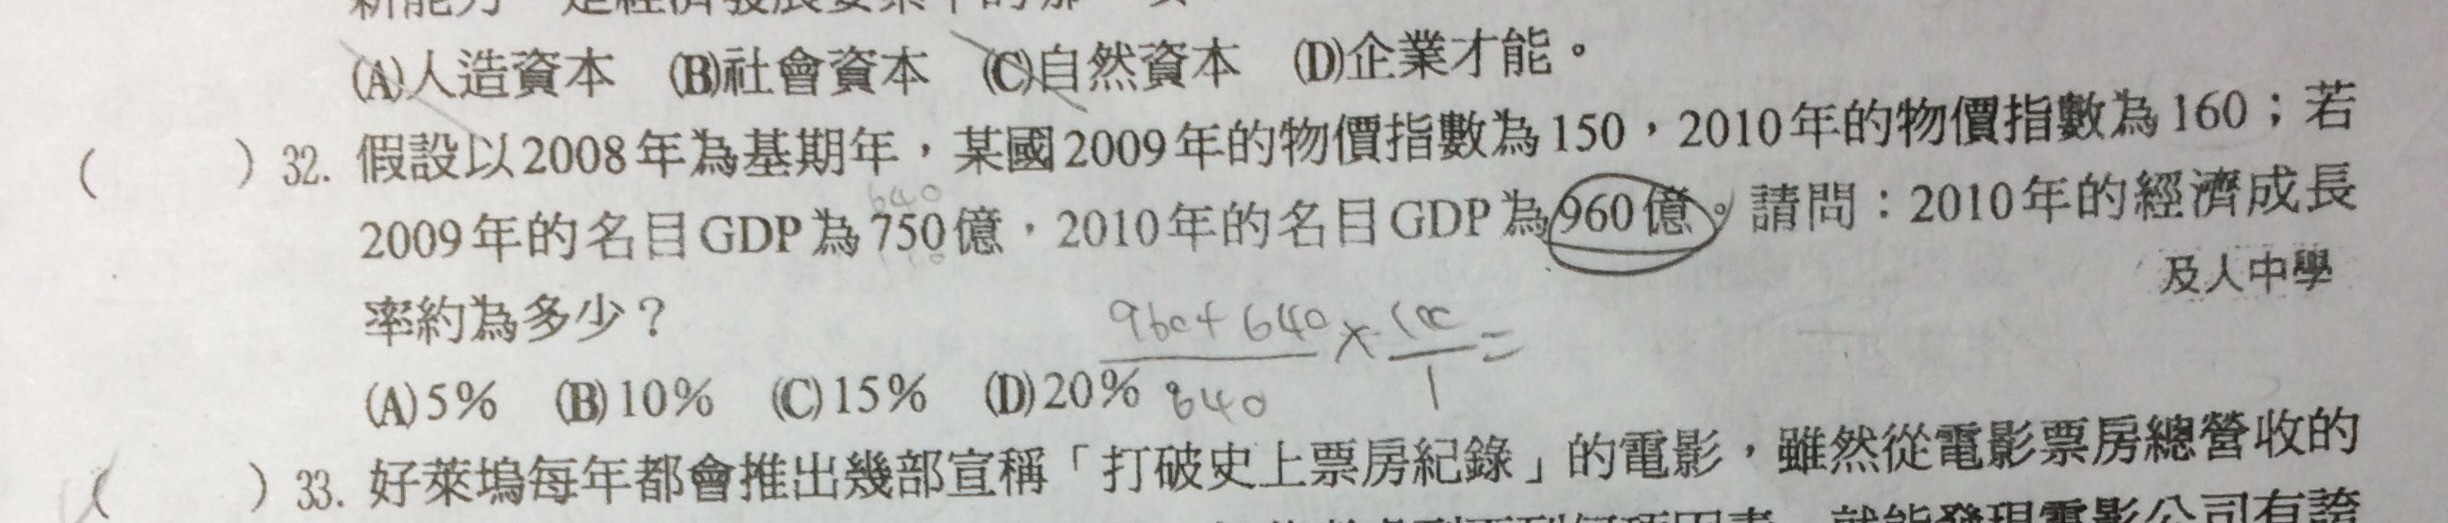 (A)人造資本 (B)社會資本 (C)自然資本 (D)企業才能。
( ) 32. 假設以2008年為基期年，某國2009年的物價指數為150，2010年的物價指數為160；若
640
2009年的名目GDP為750億，2010年的名目GDP為960億。請問：2010年的經濟成長
及人中學
率約為多少？
960+640
(A)5% (B)10% (C)15% (D)20%
( ) 33. 好萊塢每年都會推出幾部宣稱「打破史上票房紀錄」的電影，雖然從電影票房總營收的